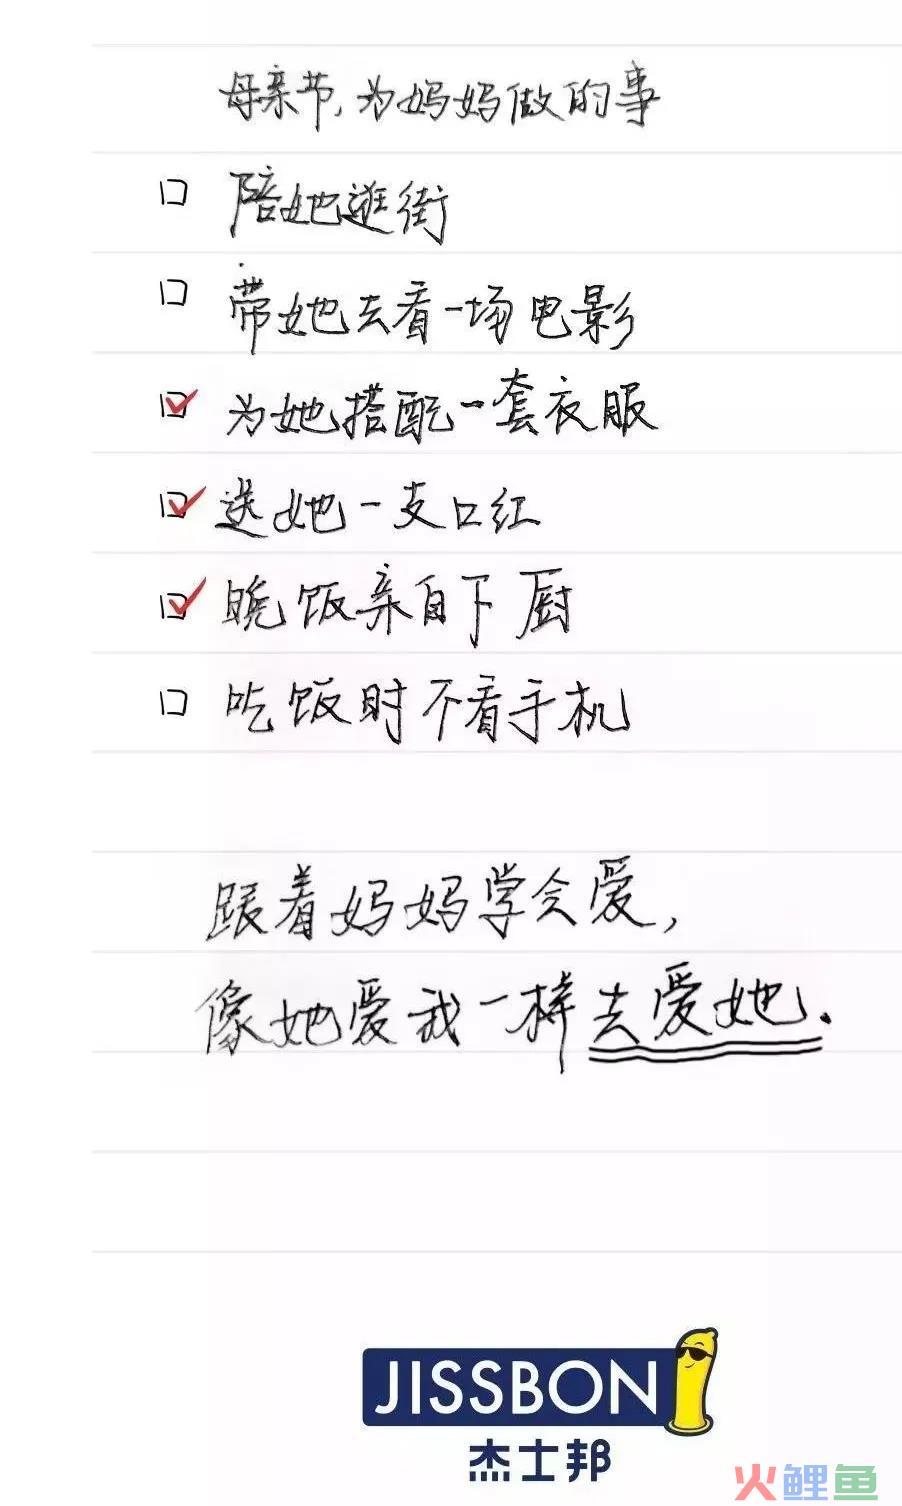 母亲节,为妈妈做的事
陪她逛街
带她去看一场电影
为她搭配一套衣服
送她一支口红
晚饭亲自下厨
吃饭时不看手机
跟着妈妈学会爱,
像她爱我一样去爱她.
JISSBON
杰士邦
火鲤鱼